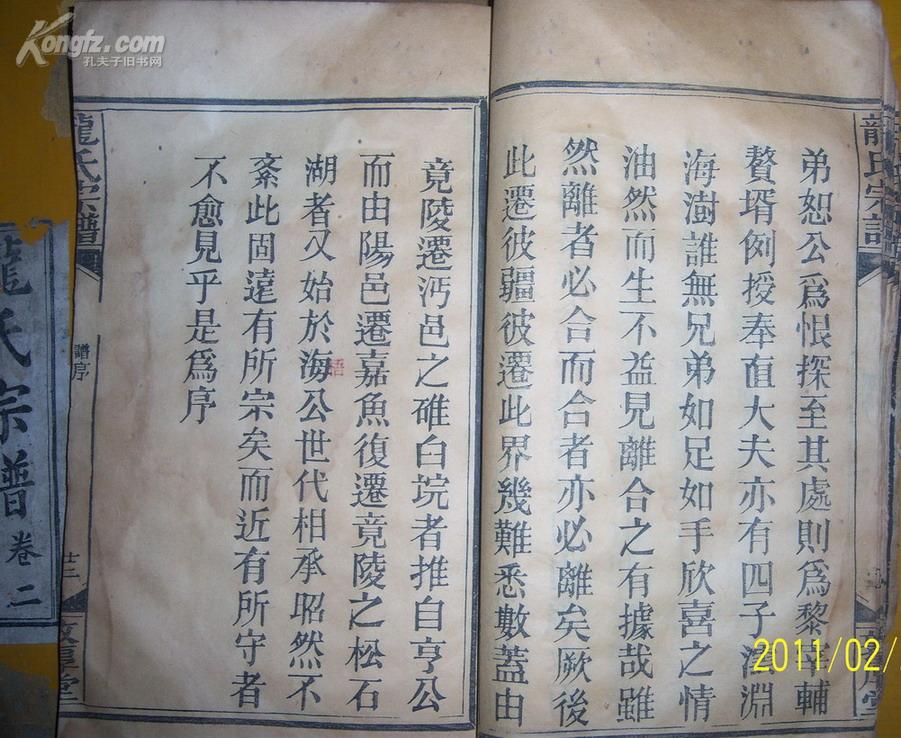 Kongfz.com
孔夫子旧书网
龍氏宗譜
弟恕公爲恨探至其處則爲黎
輔
贅壻例授奉直大夫亦有四子
淵
海澍誰無兄弟如足如手欣喜之情
油然而生不益見離合之有據哉雖
然離者必合而合者亦必離矣厥後
此遷彼疆彼遷此界幾難悉數蓋由
竟陵遷沔邑之碓臼垸者推自亨公
而由陽邑遷嘉魚復遷竟陵之松石
湖者又始於海公世代相承昭然不
悟
紊此固遠有所宗矣而近有所守者
不愈見乎是爲序
龍氏宗譜
譜序
廿三
堂
龍氏宗譜
卷二
2011/02/